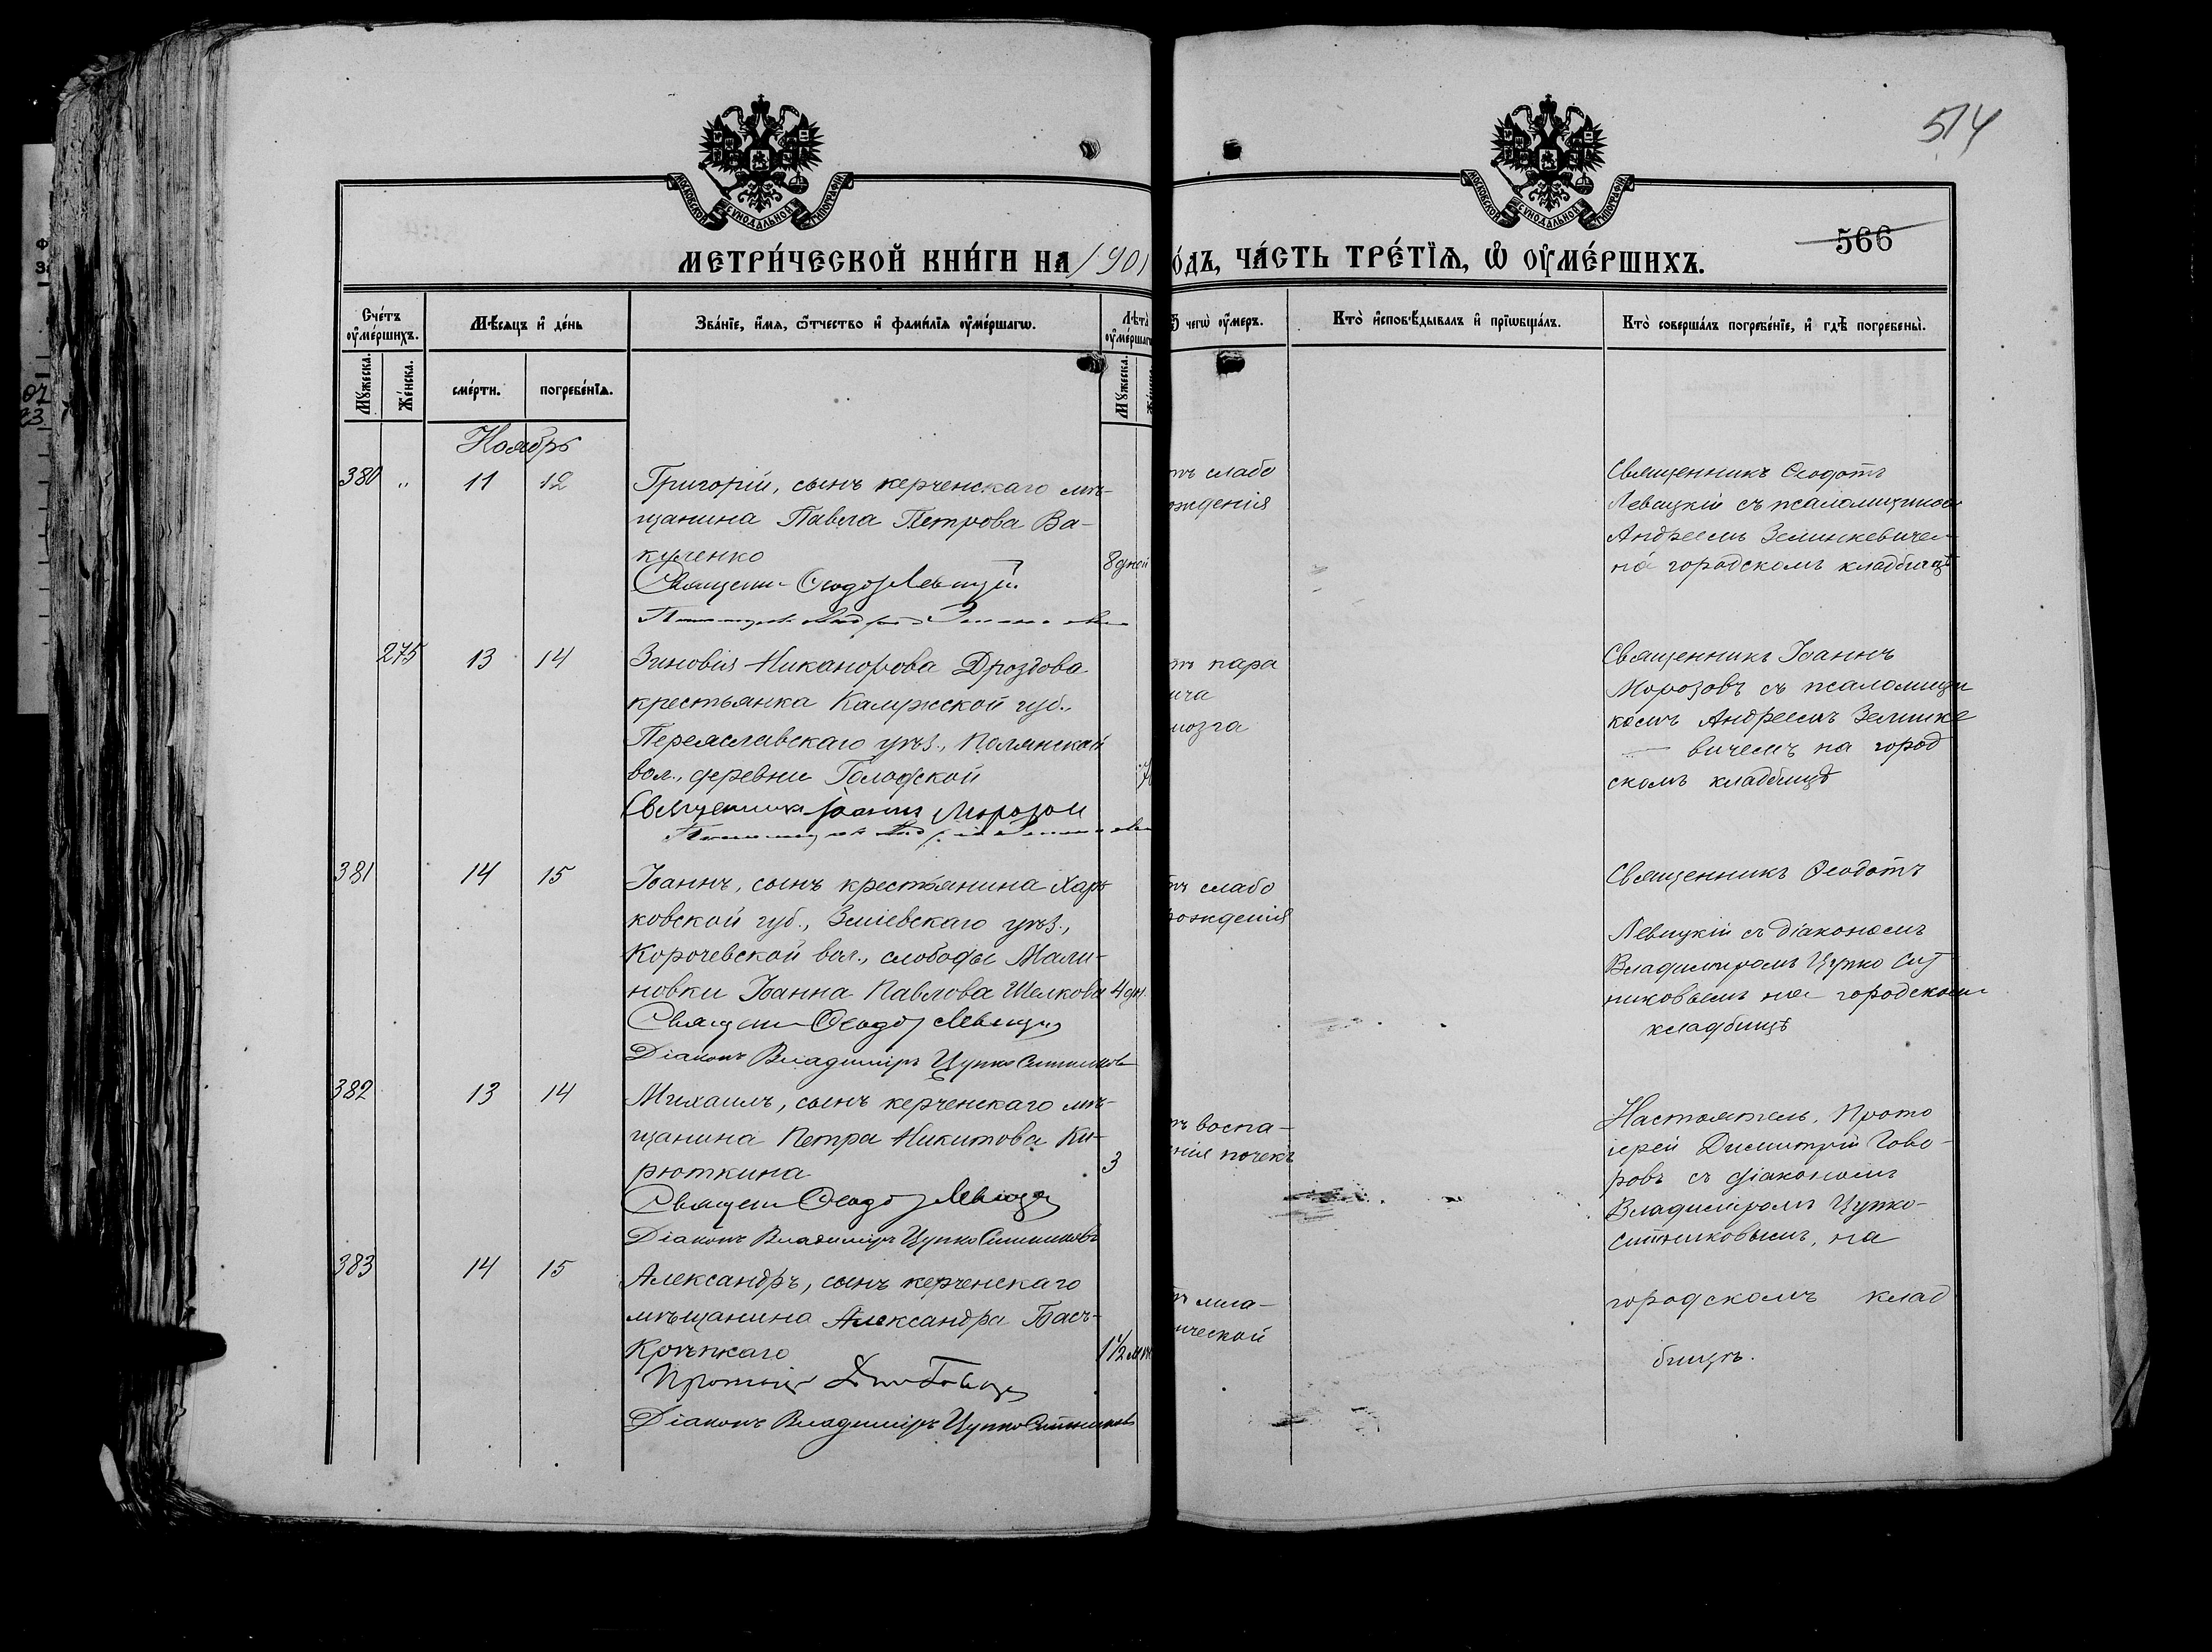 514
566
МОСКОВСКОЙ СѴНОДАЛЬНОЙ ТИПОГРАФІИ
МОСКОВСКОЙ СѴНОДАЛЬНОЙ ТИПОГРАФІИ
МЕТРИ́ЧЕСКОЙ КНИ́ГИ НА 1901
о́дъ, ЧА́СТЬ ТРЕ́ТЇѦ, Ѡ҆ ОУ҆МЕ́РШИХЪ.
Счéтъ оу҆мéршихъ.
Мѣ́сяцъ и҆ де́нь
Зва́нїе, и҆́мя, ѻ҆́тчество и҆ фами́лїя оу҆ме́ршагѡ.
Лѣта̀ оу҆ме́ршаг
Ѿ чегѡ̀ оу҆́меръ.
Кто̀ и҆сповѣ́дывалъ и҆ прїѡбща́лъ.
Кто̀ соверша́лъ погребе́нїе, и҆ гдѣ̀ погребены̀.
Мꙋ́жеска.
Же́нска.
сме́рти.
погребе́нїя.
Мꙋ́жеска.
Ноябрь
380 " 11 12
Григорій, сынъ керченскаго мѣ-
щанина Павла Петрова Ва-
куленко
8 дней
Священ Ѳеодот Левицкій
тъ слабо
ождения
Священникъ Ѳеодотъ
Левицкій съ псаломщиком
Андреемъ Зелинкевичем
на городскомъ кладбищѣ
275 13 14
Зиновія Никанорова Дроздова
крестьянка Калужской губ.,
Перемславскаго уѣз., Полянской
вол., деревни Голодской
Священникъ Іоаннъ Морозов
тъ пара
ича
мозга
Священникъ Іоаннъ
Морозовъ съ псаломщи
комъ Андреемъ Зелинке
— вичемъ на город
скомъ кладбищѣ
381 14 15
Іоаннъ, сынъ крестьянина Харь
ковской губ., Зміевскаго уѣз.,
Корочевской вол., слободы Мали-
новки Іоанна Павлова Шелкова 4 дн.
Священ Ѳеодот Левицкій
Діаконъ Владиміръ Цупко Ситников
тъ слабо
рожденія
Священникъ Ѳеодотъ
Левицкій съ діакономъ
Владиміромъ Цупко Сит
никовымъ на городском
кладбищѣ
382 13 14
Михаилъ, сынъ керченскаго мѣ-
щанина Петра Никитова Ки-
рюткина
3
Священ Ѳеодот Левицкій
Діаконъ Владиміръ Цупко Ситниковъ
тъ воспа-
енія почекъ
Настоятель, Прото
іерей Димитрій Гово-
ровъ съ діакономъ
Владиміромъ Цупко-
Ситниковымъ, на
городскомъ клад
бищѣ.
383 14 15
Александръ, сынъ керченскаго
мѣщанина Александра Басъ-
Крѣпкаго
1 1/2 м
Діаконъ Владиміръ Цупко Ситников
тъ мла-
нческой